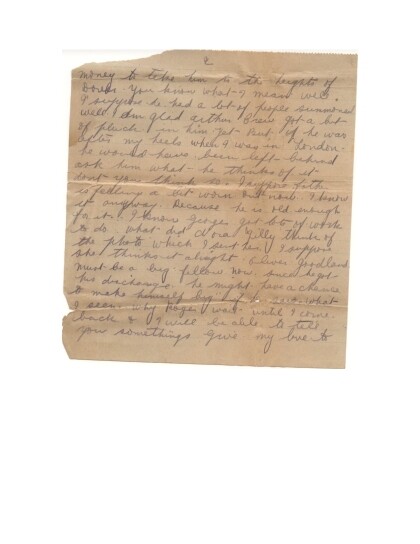 2
money to take him to the heights of
Dover. You know what I mean well.
I suppose he had a lot of people summoned
well I am glad Arthur Drew got a bit
of pluck in him yet. But if he was
after my heels when I was in London.
he would have been left behind
ask him what he thinks of it
dont you think so. I suppose father
is feeling a bit worn out now. I know
it anyway. Because he is old enough
for it. I know George got lots of work
to do. What did Nora Tilly think of
the photo which I sent her I suppose
she thinks it alright. Oliver Goodland
must be a big fellow now. since he got
his discharge. he might have a chance
to make himself big if he saw what
I seen. why Roger wait until I come
back & I will be able to tell
you somethings Give my love to